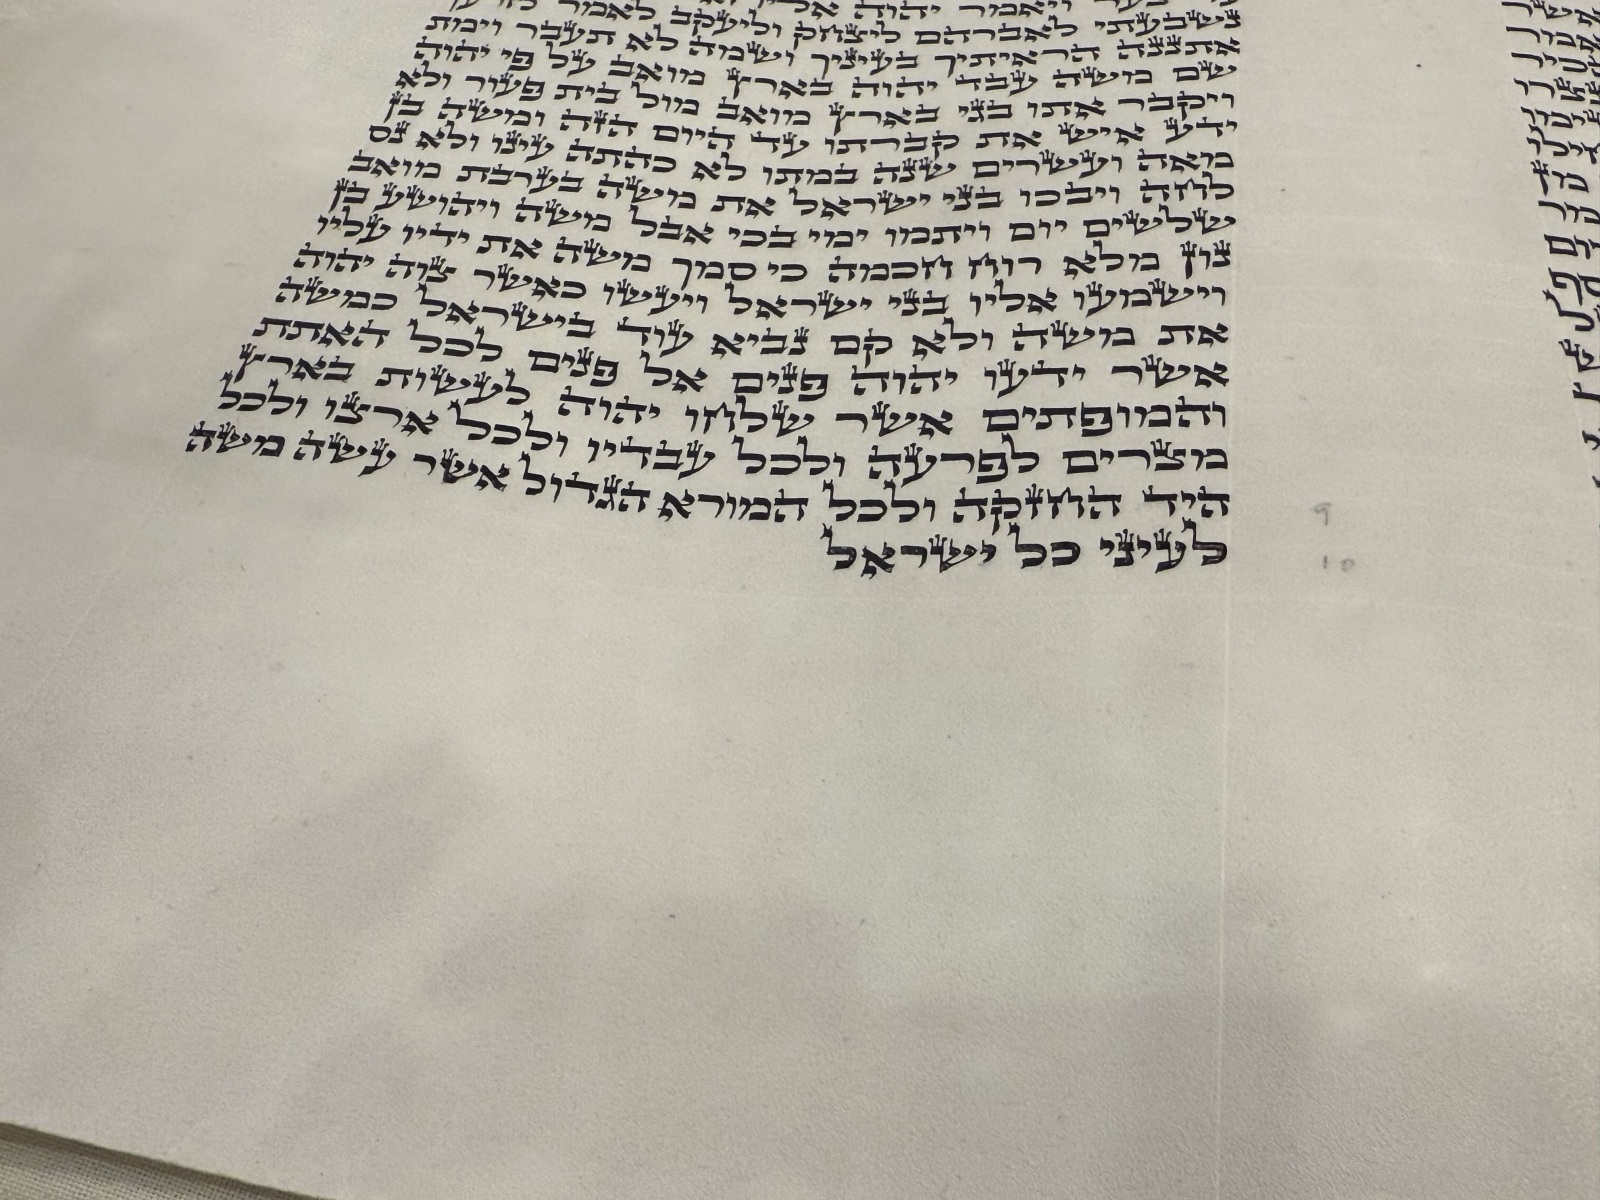 ויאמר יהוה אליו
נשבעתי לאברהם ליצחק וליעקב לאמר
אתננה הראיתיך בעיניך ושמה לא תעבר וימת
שם משה עבד יהוה בארץ מואב על פי יהוה
ויקבר אתו בגי בארץ מואב מול בית פעור ולא
ידע איש את קברתו עד היום הזה ומשה בן
מאה ועשרים שנה במתו לא כהתה עינו ולא נס
לחה ויבכו בני ישראל את משה בערבת מואב
שלשים יום ויתמו ימי בכי אבל משה ויהושע בן
נון מלא רוח חכמה כי סמך משה את ידיו עליו
וישמעו אליו בני ישראל ויעשו כאשר צוה יהוה
את משה ולא קם נביא עוד בישראל כמשה
אשר ידעו יהוה פנים אל פנים לכל האתת
והמופתים אשר שלחו יהוה לעשות בארץ
מצרים לפרעה ולכל עבדיו ולכל ארצו ולכל
היד החזקה ולכל המורא הגדול אשר עשה משה
לעיני כל ישראל
9
10